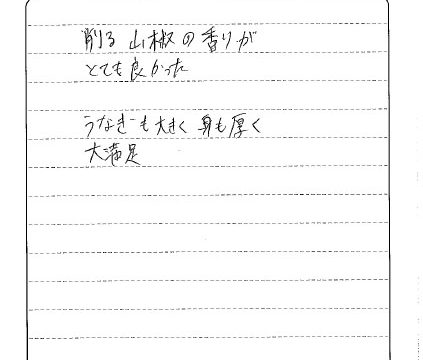 削る 山椒の香りが
とても良かった
うなぎも大きく 身も厚く
大満足